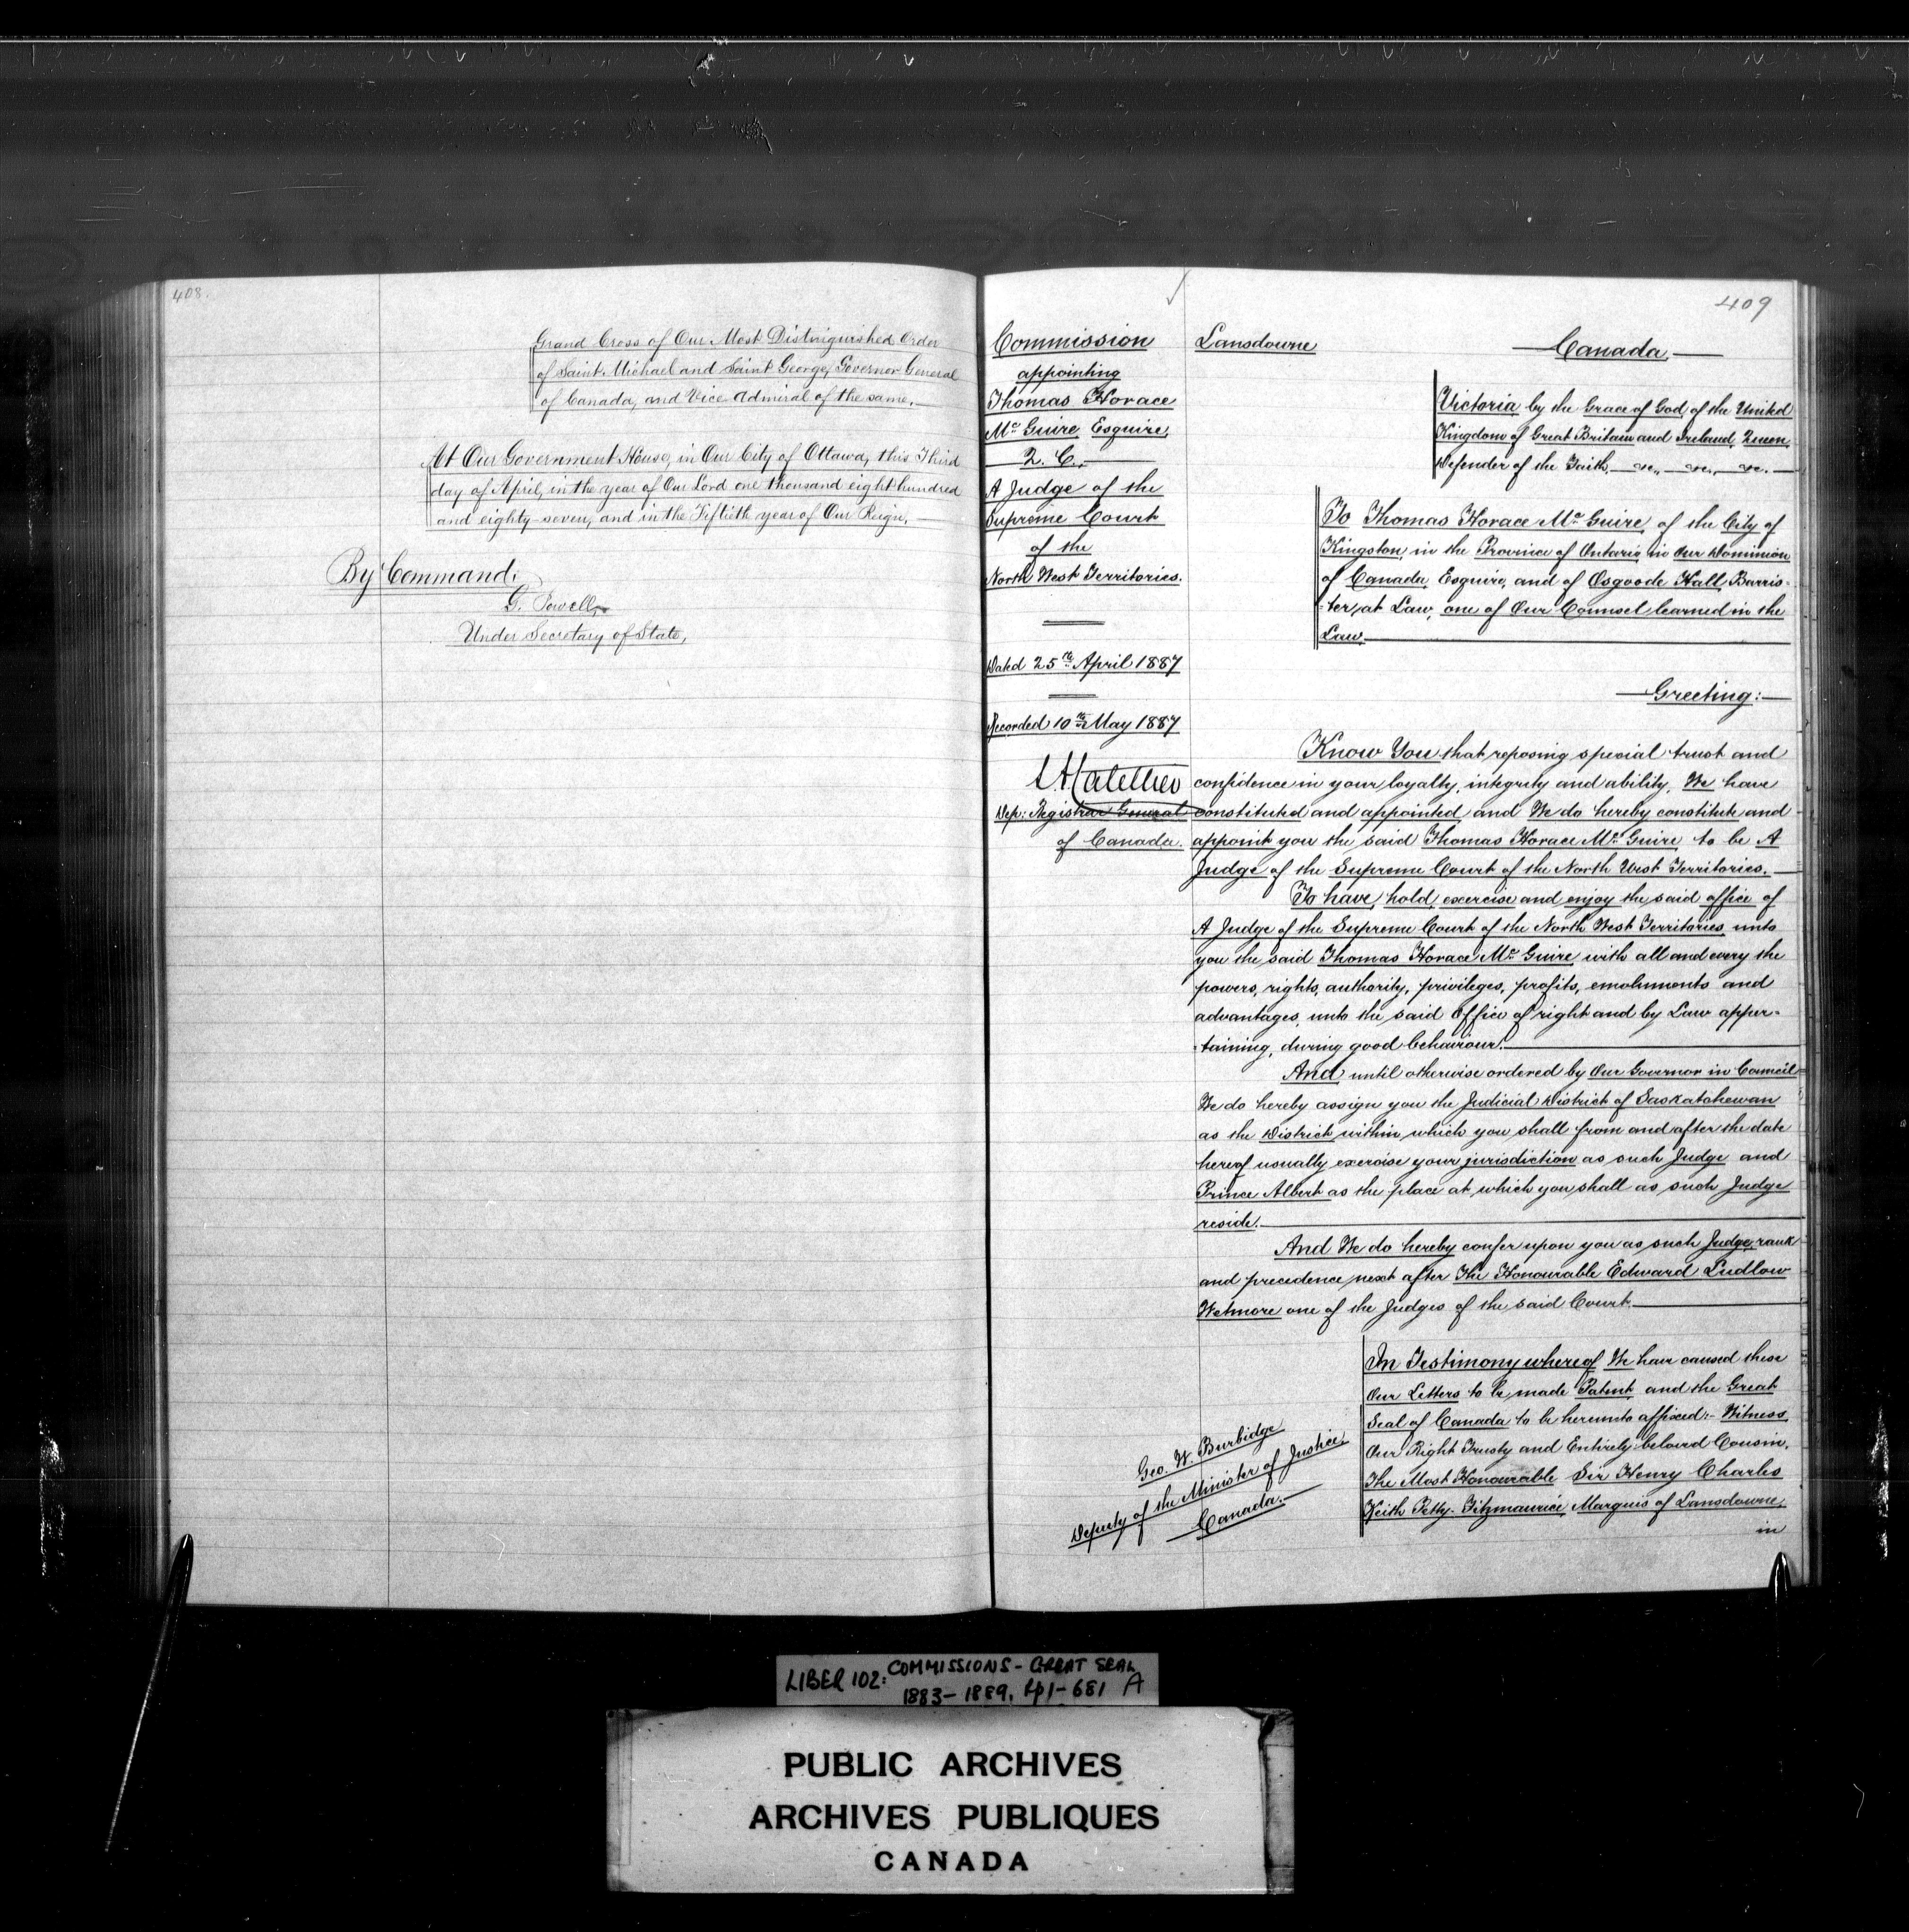 408.
Grand Cross of Our Most Distinguished Order
of Saint Michael and Saint George, Governor General
of Canada, and Vice Admiral of the same.
At Our Government House, in Our City of Ottawa, this Third
day of April, in the year of Our Lord one thousand eight hundred
and eighty-seven, and in the Fiftieth year of Our Reign.
By Command.
G. Powell,
Under Secretary of State,
409
Commission
appointing
Thomas Horace
Mc Guire, Esquire,
Q. C.,
A Judge of the
Supreme Court
of the
North West Territories.
Dated 25th April 1887
Recorded 10th May 1887
Dep: Registrar General
of Canada.
Lansdowne
Canada.
Victoria by the Grace of God, of the United
Kingdom of Great Britain and Ireland, Queen,
Defender of the Faith, &c., &c., &c.
To Thomas Horace Mc Guire, of the City of
Kingston, in the Province of Ontario, in Our Dominion
of Canada, Esquire, and of Osgoode Hall, Barris-
-ter, at Law, one of Our Counsel learned in the
Law.
Greeting:
Know You that reposing special trust and
confidence in your loyalty, integrity and ability, We have
constituted and appointed, and We do hereby constitute and
appoint you the said Thomas Horace Mc Guire to be A
Judge of the Supreme Court of the North West Territories.
To have, hold, exercise and enjoy the said office of
A Judge of the Supreme Court of the North West Territories, unto
you the said Thomas Horace Mc Guire, with all and every the
powers, rights, authority, privileges, profits, emoluments and
advantages, unto the said Office of right and by Law apper-
-taining, during good behaviour.
And until otherwise ordered by Our Governor in Council
We do hereby assign you the Judicial District of Saskatchewan
as the District within which you shall from and after the date
hereof usually exercise your jurisdiction as such Judge and
Prince Albert as the place at which you shall as such Judge
reside.
And We do hereby confer upon you as such Judge, rank
and precedence next after The Honourable Edward Ludlow
Wetmore one of the Judges of the said Court.
In Testimony whereof We have caused these
Our Letters to be made Patent, and the Great
Seal of Canada to be hereunto affixed:- Witness,
Our Right Trusty and Entirely beloved Cousin,
The Most Honourable Sir Henry Charles
Keith Petty-Fitzmaurice, Marquis of Lansdowne,
in
Geo. W. Burbidge
Deputy of the Minister of Justice,
Canada.
LIBER 102: COMMISSIONS - GREAT SEAL
1883-1889, pp 1-681 A
PUBLIC ARCHIVES
ARCHIVES PUBLIQUES
CANADA